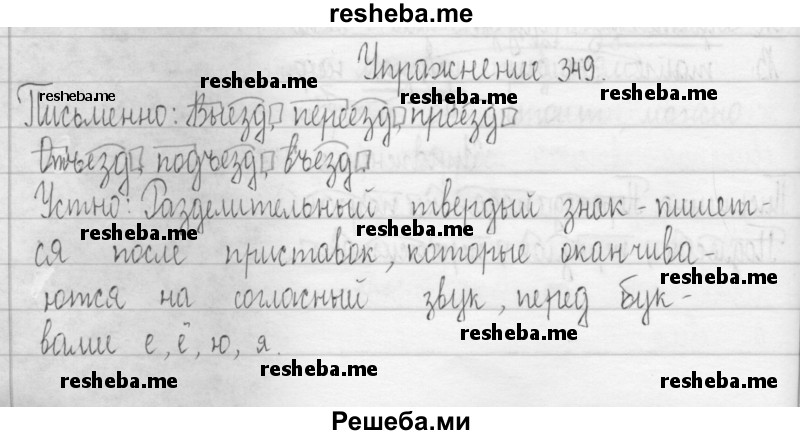 resheba.me
Упражнение 349.
resheba.me
resheba.me resheba.me resheba.me
Письменно: Выезд, переезд, проезд
Отъезд, подъезд, въезд.
Устно: Разделительный твердый знак - пишет-
resheba.me resheba.me resheba.me
ся после приставок, которые оканчива-
ются на согласный звук, перед бук-
resheba.me
вами е, ё, ю, я.
resheba.me resheba.me resheba.me
Решеба.ми